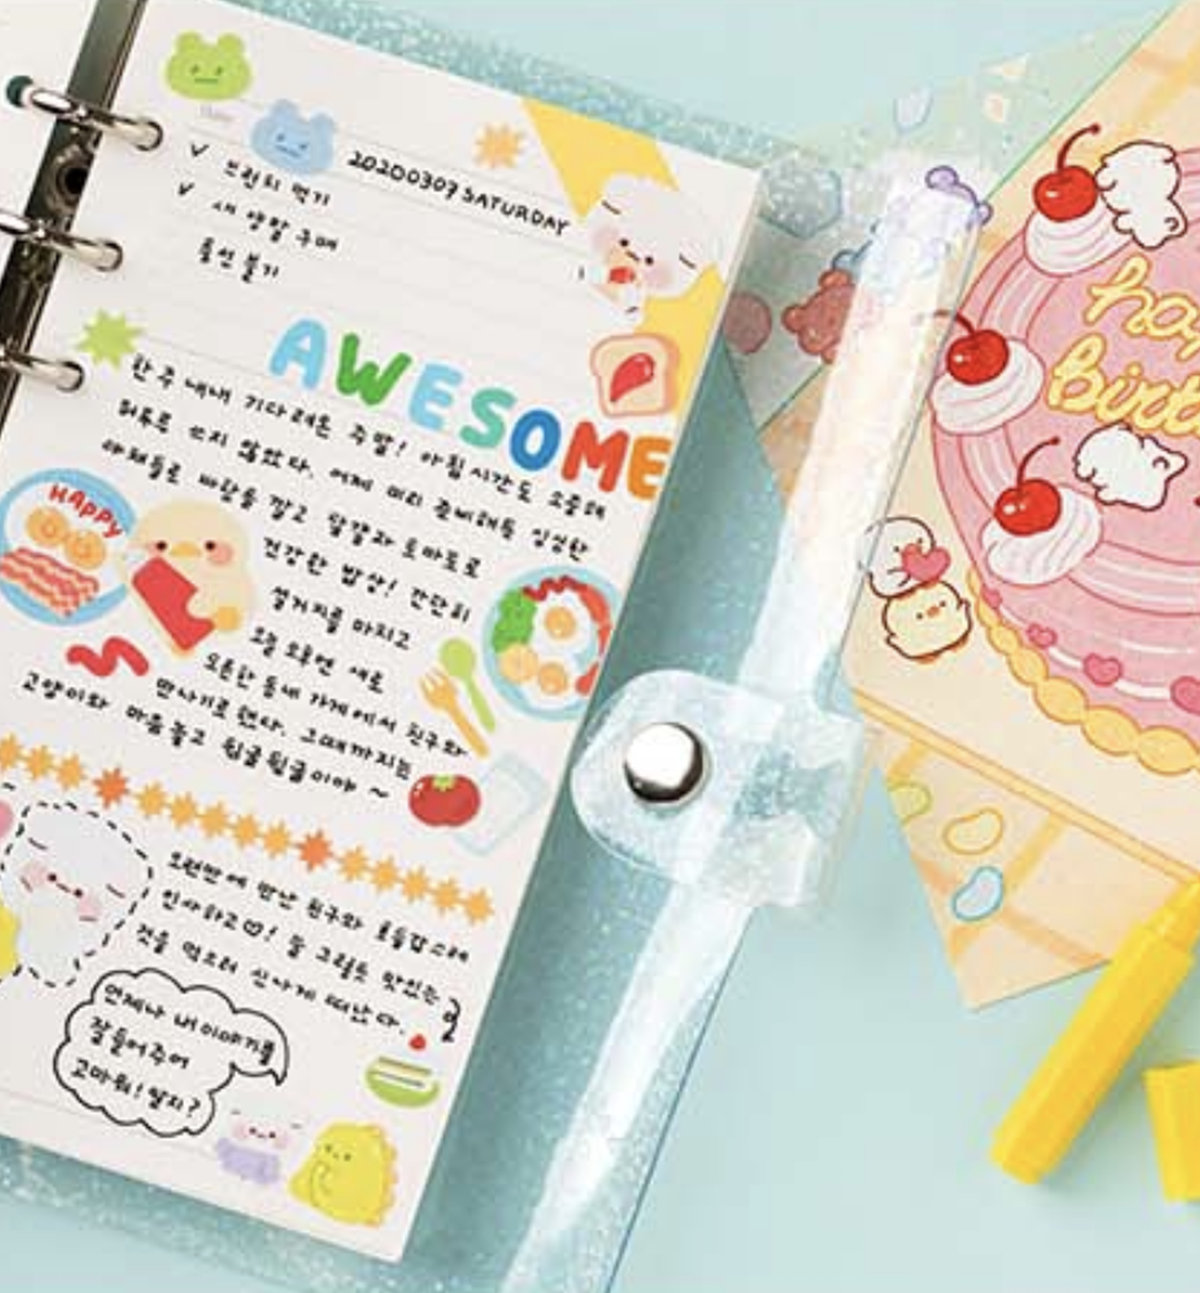 20200307 SATURDAY
브런치 먹기
새 양말 구매
풍선 불기
AWESOME
한 주 내내 기다려온 주말! 아침 시간도 소중해
허투루 쓰지 않았다. 어제 미리 준비해둔 싱싱한
야채들로 바탕을 깔고 달걀과 토마토로
건강한 밥상! 간단히
설거지를 마치고
HAPPY
오늘 오후엔 새로
오픈한 동네 가게에서 친구와
만나기로 했다. 그때까지는
고양이와 마음놓고 뒹굴뒹굴이야 ~
오랜만에 만난 친구와 호들갑스레
인사하고♡! 늘 그렇듯 맛있는
것을 먹으러 신나게 떠났다.
언제나 내 이야기를
잘 들어주어
고마워! 알지?
happy
Birt